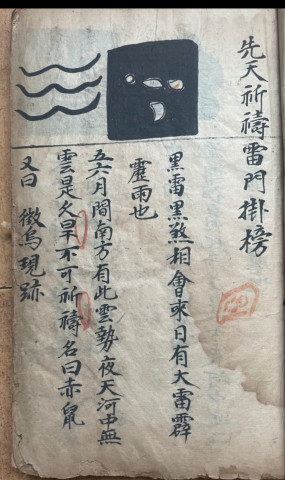 先天祈禱雷門掛榜
黑雷黑煞相會來日有大雷霹
靂雨也
五六月間南方有此雲勢夜天河中無
雲是久旱不可祈禱名曰赤鼠
又曰 徵烏現跡